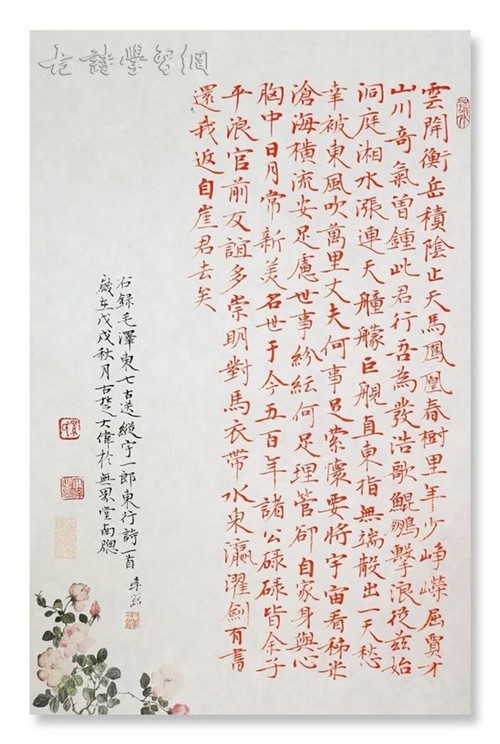 古詩學習網
雲開衡岳積陰止天馬鳳凰春樹里年少崢嶸屈賈才
山川奇氣曾鍾此君行吾為發浩歌鯤鵬擊浪從茲始
洞庭湘水漲連天艟艨巨舰直東指無端散出一天愁
幸被東風吹萬里丈夫何事足縈懷要將宇宙看稊米
滄海橫流安足慮世事紛紜何足理管卻自家身與心
胸中日月常新美名世于今五百年諸公碌碌皆余子
平浪官前友誼多崇明對馬衣帶水東瀛濯劍有書
還我返自崖君去矣
右錄毛澤東七古送縱宇一郎東行詩一首
歲在戊戌秋月古楚大偉於無界堂南窗